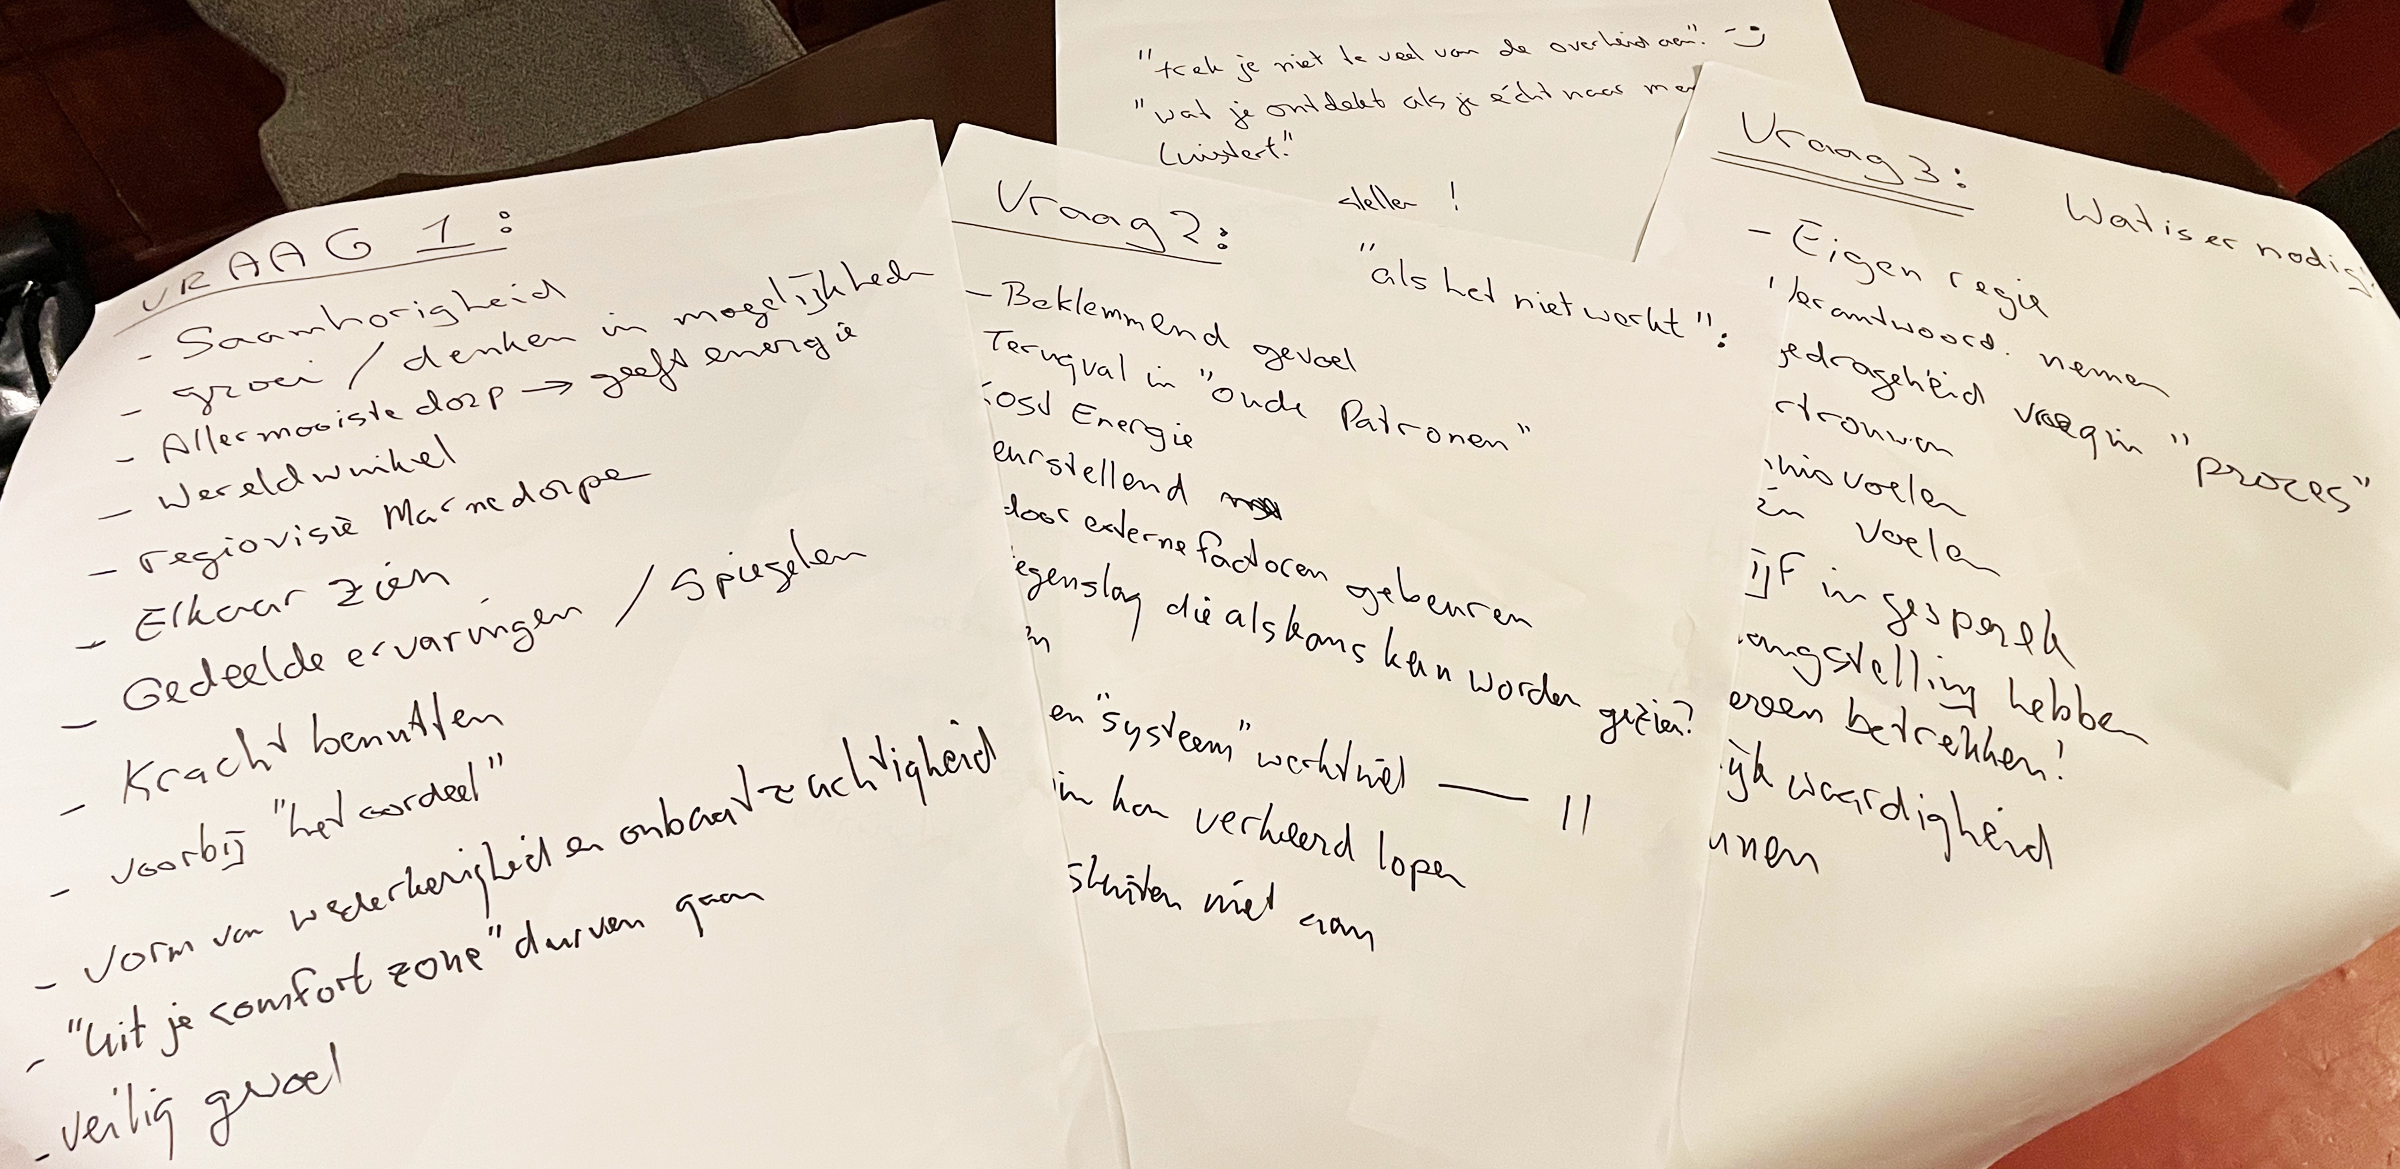 "trek je niet te veel van de overheid aan".
"wat je ontdekt als je écht naar
luistert."
stellen !
VRAAG 1:
- Saamhorigheid
- groei / denken in mogelijkheden
- Allermooiste dorp → geeft energie
- Wereldwinkel
- regiovisie Marnedorpen
- Elkaar zien
- Gedeelde ervaringen / Spiegelen
- Kracht benutten
- voorbij "het oordeel"
- vorm van wederkerigheid en onbaatzuchtigheid
- "uit je comfort zone" durven gaan
- veilig gevoel
Vraag 2:
"als het niet werkt":
- Beklemmend gevoel
Terugval in "oude Patronen"
Energie
door externe factoren gebeuren
die als kans kan worden gezien?
"systeem" werkt niet — 11
kan verkeerd lopen
sluiten niet aan
Vraag 3:
Wat is er nodig
- Eigen regie
verantwoord. nemen
vroeg in "proces"
voelen
voelen
in gesprek
hebben
betrekken!
waardigheid